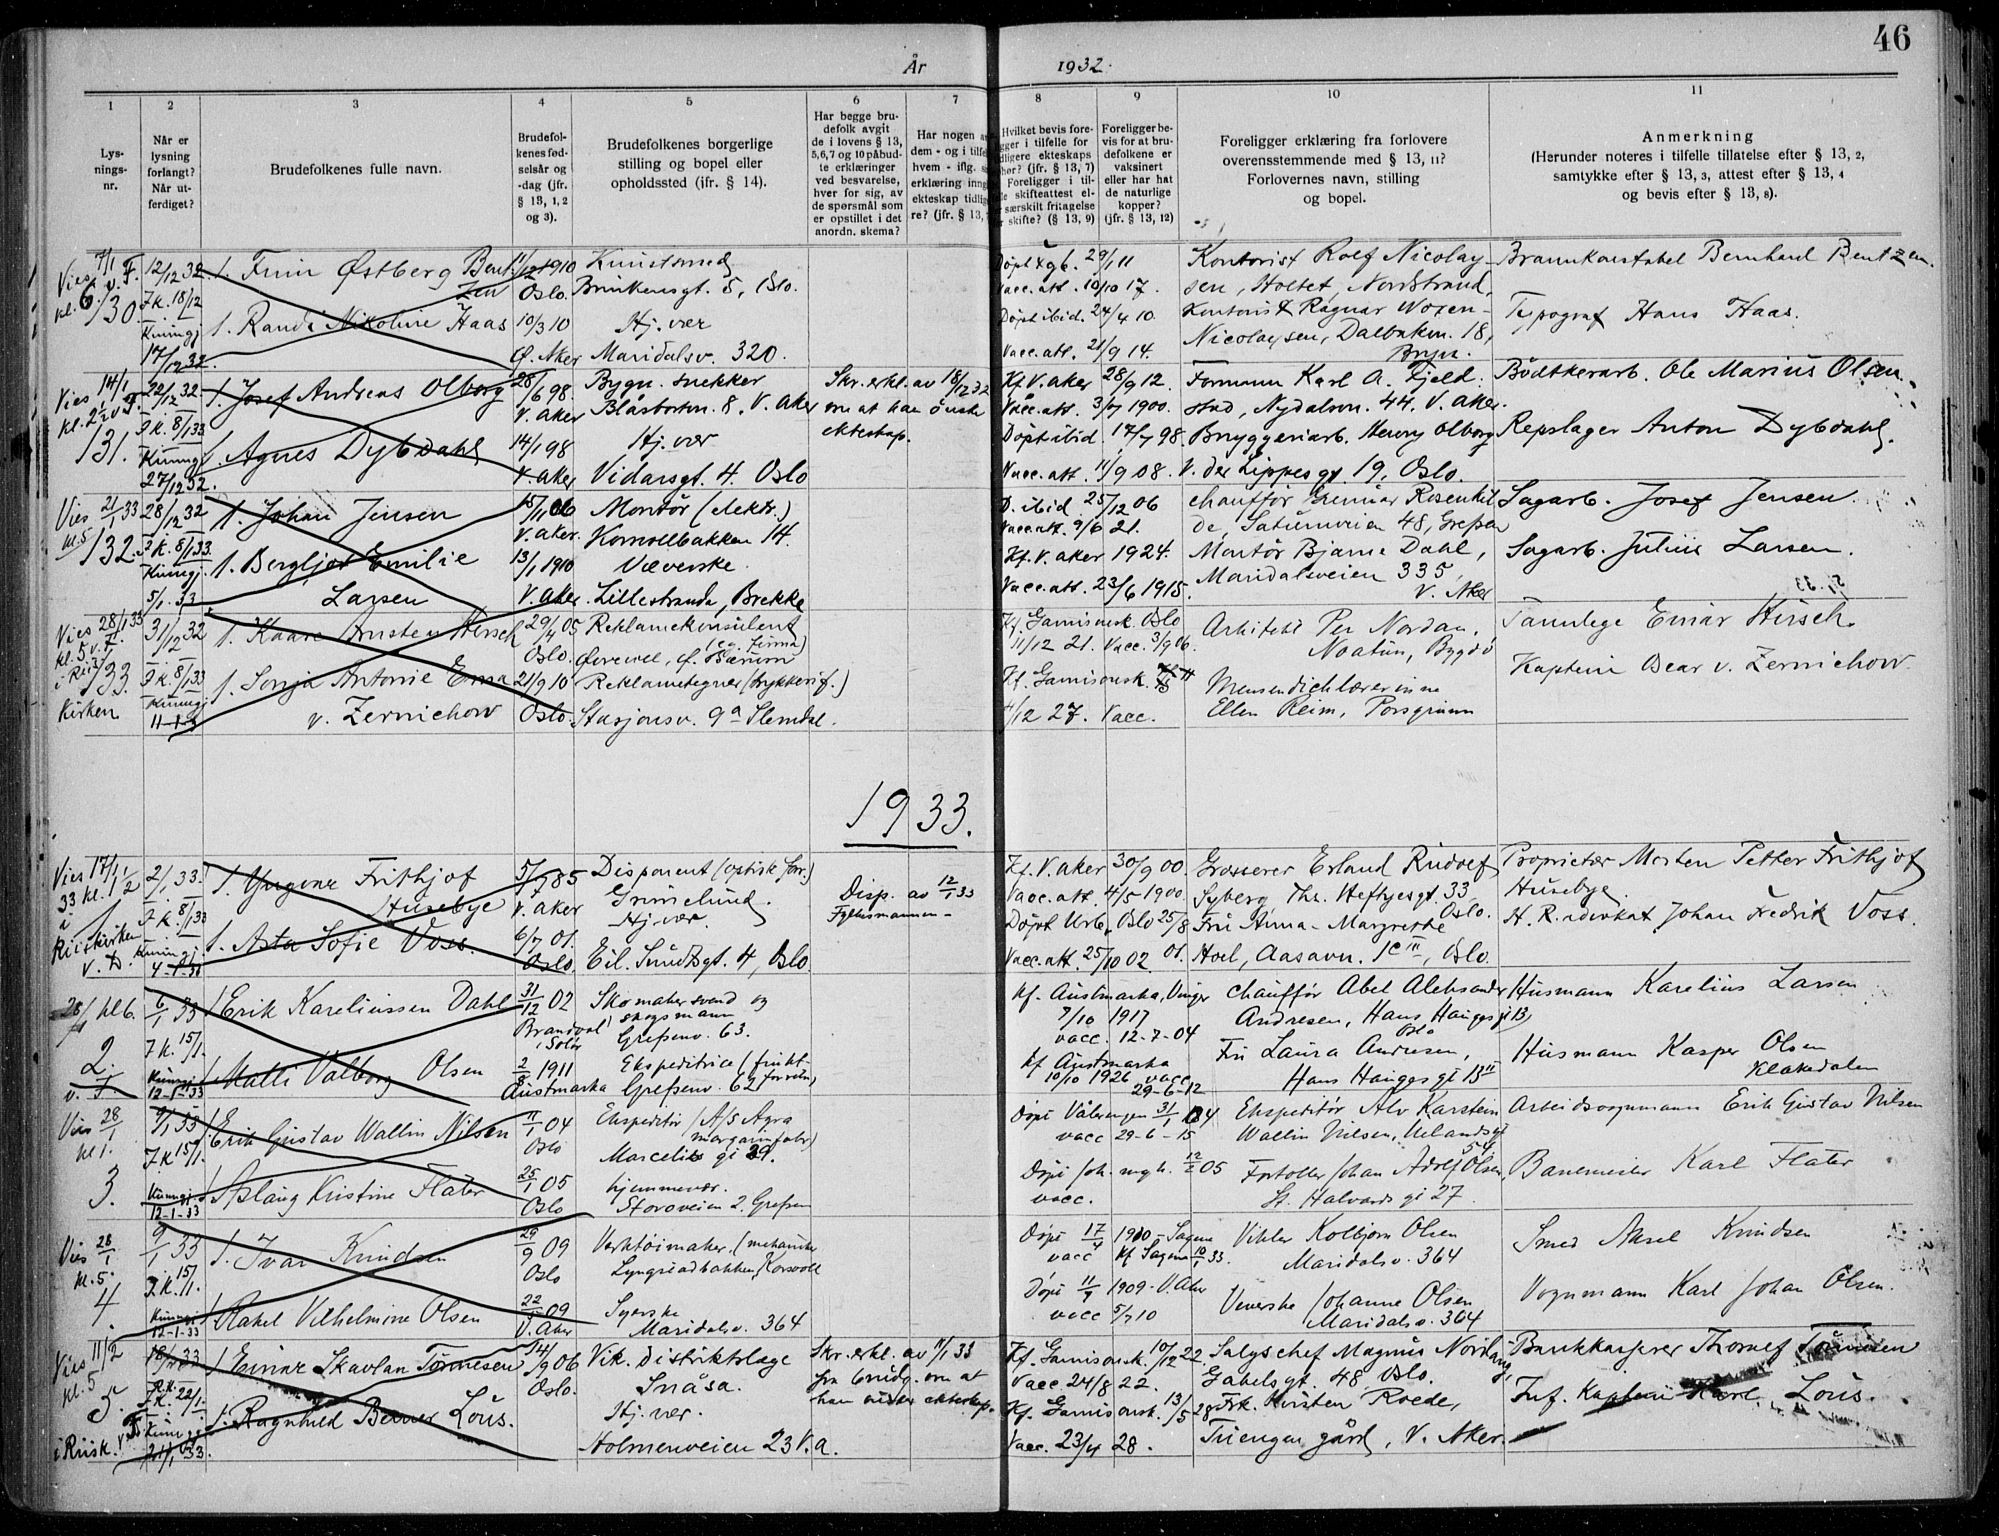 46
År 1932.
1 2 3 4 5 6 7 8 9 10 11
Lys-
nings-
nr.
Når er
lysning
forlangt?
Når ut-
ferdiget?
Brudefolkenes fulle navn.
Brudefol-
kenes fød-
selsår og
-dag (jfr.
§ 13, 1, 2
og 3).
Brudefolkenes borgerlige
stilling og bopel eller
opholdssted (jfr. § 14).
Har begge bru-
defolk avgit
de i lovens § 13,
5,6,7 og 10 påbud-
te erklæringer
ved besvarelse,
hver for sig, av
de spørsmål som
er opstillet i det
anordn. skema?
Har nogen a
dem - og i tilfe
hvem - iflg. s
erklæring inng
ekteskap tidlig
re? (jfr. § 13,
Hvilket bevis fore-
gger i tilfelle for
dligere ekteskaps
hør? (jfr. § 13, 7)
Foreligger i til-
le skifteattest el-
r særskilt fritagelse
r skifte? (§ 13, 9)
Foreligger be-
vis for at bru-
defolkene er
vaksinert
eller har hat
de naturlige
kopper?
(jfr. § 13, 12)
Foreligger erklæring fra forlovere
overensstemmende med § 13, 11?
Forlovernes navn, stilling
og bopel.
Anmerkning
(Herunder noteres i tilfelle tillatelse efter § 13, 2,
samtykke efter § 13, 3, attest efter § 13, 4
og bevis efter § 13, 8).
Vies 7/1
kl. 6. v. F.
130.
12/12 32.
F.k. 18/12
Kunngj.
17/12 32
1. Finn Østberg Bent-
zen
11/12 1910
Oslo.
Kunstsmed
Brinkensgt. 5, Oslo.
Døpt Xgb. 29/1 11
Vacc. att. 10/10 17.
Kontorist Rolf Nicolay-
sen, Holtet, Nordstrand,
Brannkonstabel Bernhard Bentzen.
1. Randi Nikoline Haas
10/3 10
Ø. Aker
Hj. vær
Maridalsv. 320.
Døpt ibid. 24/4 10.
Vacc. att. 21/9 14.
Kontorist Ragnar Woxen-
Nicolaysen, Dalbakkn. 18,
Bryn.
Typograf Hans Haas.
Vies 14/1
kl. 2½ v. F.
131.
22/12 32.
F.k. 8/1 33
Kunngj.
27/12 32.
1. Josef Andreas Olborg
28/6 98.
V. Aker
Bygn. snekker
Blåsbortn. 8, V. Aker
Skr. erkl. av 18/12 32
om at han ønske
ekteskap.
Kf. V. aker 28/9 12.
Vacc. att. 3/7 1900.
Formann Karl A. Fjeld-
stad, Nydalsvn. 44, V. aker.
Bødtkerarb. Ole Marius Olsen.
1. Agnes Dybdahl
14/1 98
V. aker
Hj. vær
Vidarsgt. 4. Oslo
Døpt ibid. 17/7 98.
Vacc. att. 11/9 08.
Bryggeriarb. Henry Olborg
V. der Lippesgt 19, Oslo.
Repslager Anton Dybdahl.
Vies 21/1 33
kl. 5
132.
28/12 32
F.k. 8/1 33.
Kunngj.
5/1. 33
1. Johan Jensen
15/11 06
V. aker.
Montør (elektr.)
Kornvollbakken 14.
D. ibid 25/12 06
Vacc. att. 9/6 21.
Chauffør Gunnar Rosenkil
de, Saturnveien 48, Grefsen
Sagarb. Josef Jensen.
1. Bergljot Emilie
Larsen
13/1 1910
V. aker.
Væverske.
Lillestranda, Brekke
Kf. V. aker 1924.
Vacc. att. 23/6 1915.
Montør Bjarne Dahl,
Maridalsveien 335,
V. Aker
Sagarb. Julius Larsen.
Vies 28/1 33
kl. 5 v. F.
i Riis
133.
Kirken
31/12 32
F.k. 8/1 33
Kunngj.
11-1-3
1. Kaare Arnsten Hirsch
29/4 05
Oslo.
Reklamekonsulent
(eg. firma)
Øvrevoll, Ø. Bærum
Kf. Garnisonsk. Oslo
11/12 21. Vacc. 3/9 06.
Arkitekt Per Nordan,
Noatun, Bygdø
Tannlege Einar Hirsch.
1. Sonja Antonie Erna
v. Zernichow
21/9 10
Oslo.
Reklametegner (trykkerif.)
Stasjonsv. 9a Slemdal.
Kf. Garnisonsk.
4/12 27. Vacc.
Mensendicklærerinne
Ellen Reim, Porsgrunn
Kaptein Oscar v. Zernichow
1933.
Vies 17/1
33 kl. 1½
1
i
Riiskirken
v. D.
2/1 33.
F.k. 8/1 33
Kunngj.
4-1-33
1. Yngvar Frithjof
Husebye
5/7 85
V. aker
Disponent (optisk forr.)
Grimelund.
Disp. av 12/1 33
Fylkesmannen
Kf. V. aker 30/9 00.
Vacc. att. 4/5 1900.
Grosserer Erland Rudolf
Syberg, Th. Heftyesgt. 33,
Oslo.
Proprietær Morten Petter Frithjof
Husebye.
1. Asta Sofie Voss
6/7 01.
Oslo
Hj. vær.
Eil. Sundtsgt. 4, Oslo.
Døpt Urb. Oslo 25/8 01.
Vacc. att. 25/10 02
Fru Anna-Margrethe
Hoel, Aasavn. 1c II, Oslo.
H. R. advokat Johan Fredrik Voss.
28/1 kl 6.
2.
v. F.
6/1 33
F.k. 15/1.
Kunngj.
12-1-33
1. Erik Kareliussen Dahl
31/12 02
Brandval
i Solør
Skomakersvend og
skogsmann
Grefsenv. 63.
Kf. Austmarka, Vinger
7/10 1917
vacc. 12-7-04
Chauffør Abel Aleksander
Andresen, Hans Haugesgt 13
Oslo
Husmann Karelius Larsen
1. Malli Valborg Olsen
2/8 1911
Austmarka
Ekspeditrice (frukt-
forretn)
Grefsenv. 62
Kf Austmarka
10/10 1926 vacc
29-6-12
Fru Laura Andresen,
Hans Haugesgt 13 II
Husmann Kasper Olsen
Klakedalen
Vies 28/1
kl 1.
3.
9/1 33
F.k 15/1.
Kunngj.
12-1-33
1. Erik Gustav Wallin Nilsen
11/1 04
Oslo
Ekspeditør (A/S Agra
margarinfabr)
Marcelies gt 29.
Døpt Vålerengen 31/1 04
vacc 29-6-15
Ekspeditør Alv Karstein
Wallin Nilsen, Uelandsgt
54
Arbeidsvognmann Erik Gustav Nilsen
1. Aslaug Kristine Flater
25/1 05
Oslo
hjemmevær.
Storoveien 2. Grefsen
Døpt Joh. mgh. 12/2 05
vacc.
Fortoller Johan Adolf Olsen
St. Halvards gt 27.
Banemester Karl Flater
Vies 28/1
kl. 5.
4.
9/1 33
F.k. 15/1.
Kunngj.
12-1-33
1. Ivar Knudsen
29/9 09
Oslo
Verktøimaker, (mekaniker
Lyngstadbakken, Korsvoll
Døpt 17/4 1910 - Sagene
vacc Kf Sagene 10/1 33.
Vikler Kolbjørn Olsen
Maridalsv. 364
Smed Aksel Knudsen
1. Rakel Vilhelmine Olsen
22/ 09
V. Aker
Syerske
Maridalsv. 364
Døpt 11/7 1909 - V. Aker
vacc 5/7 10
Veverske Johanne Olsen
Maridalsv. 364
Vognmann Karl Johan Olsen.
Vies 11/2
kl. 5
5.
i Riisk. v. F.
33
F.k. 22/1.
Kunngj.
21/1 33.
1. Einar Skavlan Tønnesen
14/9 06
Oslo.
Vik. Distriktslæge
Snåsa.
Skr. erkl. av 11/1 33
fra brudg. om at
han ønsker ekteskap.
Kf. Garnisonsk. 10/12 22
Vacc 24/8 22.
Salgschef Magnus Nordang,
Gabelsgt. 48 Oslo.
Bankkasserer Thoralf Tønnesen
1. Ragnhild Berner Lous.
Hj. vær.
Holmenveien 23 V. a.
Kf. Garnisonsk. 13/5 28
Vacc. 23/4 28.
Frk. Kirsten Roede,
Tuengen gård, V. Aker.
Inf. Kaptein Karl Lous.